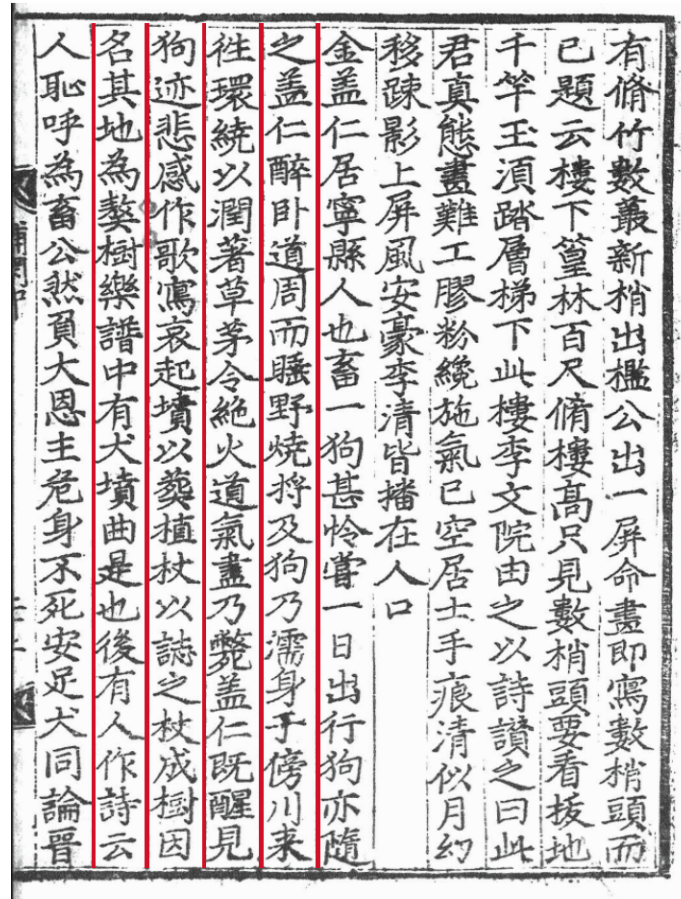 有脩竹數叢新梢出檻公出一屏命畫即寫數梢頭而
已題云樓下篁林百尺脩樓高只見數梢頭要看拔地
千竿玉湏踏層梯下此樓李文院由之以詩讃之曰此
君真態畫難工膠粉纔施氣已空居士手痕清似月幻
移踈影上屏風安豪李清皆播在人口
金盖仁居寧縣人也畜一狗甚怜甞一日出行狗亦隨
之盖仁醉卧道周而睡野燒将及狗乃濡身于傍川来
徃環繞以潤著草茅令絶火道氣盡乃斃盖仁既醒見
狗迹悲感作歌寫哀起墳以葬植杖以誌之杖成樹因
名其地為獒樹樂譜中有犬墳曲是也後有人作詩云
人恥呼為畜公然負大恩主危身不死安足犬同論晋